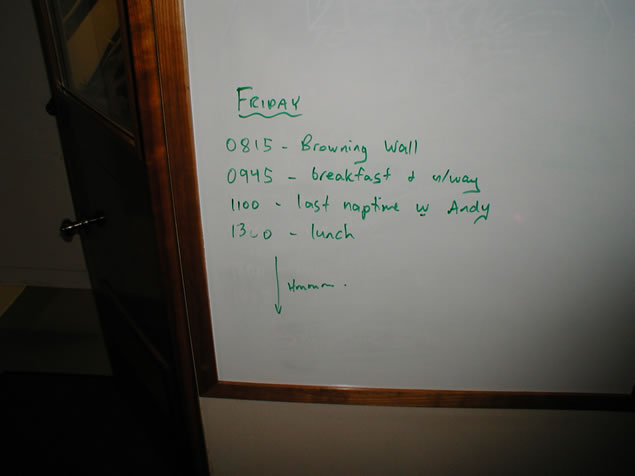 FRIDAY
0815 - Browning Wall
0945 - breakfast & u/way
1100 - last naptime w Andy
1300 - lunch
Hmmmm.